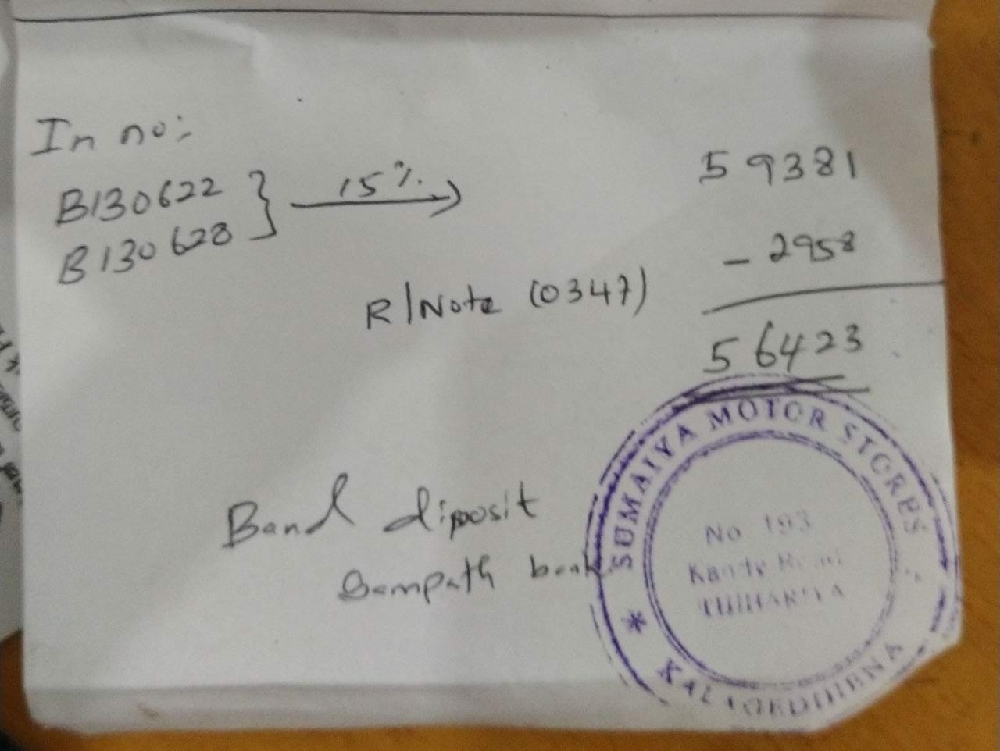 In no:
B130622
B130628
15%
59381
- 2958
R/Note (0347)
56423
Band diposit
Sampath bank
SUMAIYA MOTOR STORES
No 193
Kandy Road
THIHARIYA
* KALAGEDIHENA